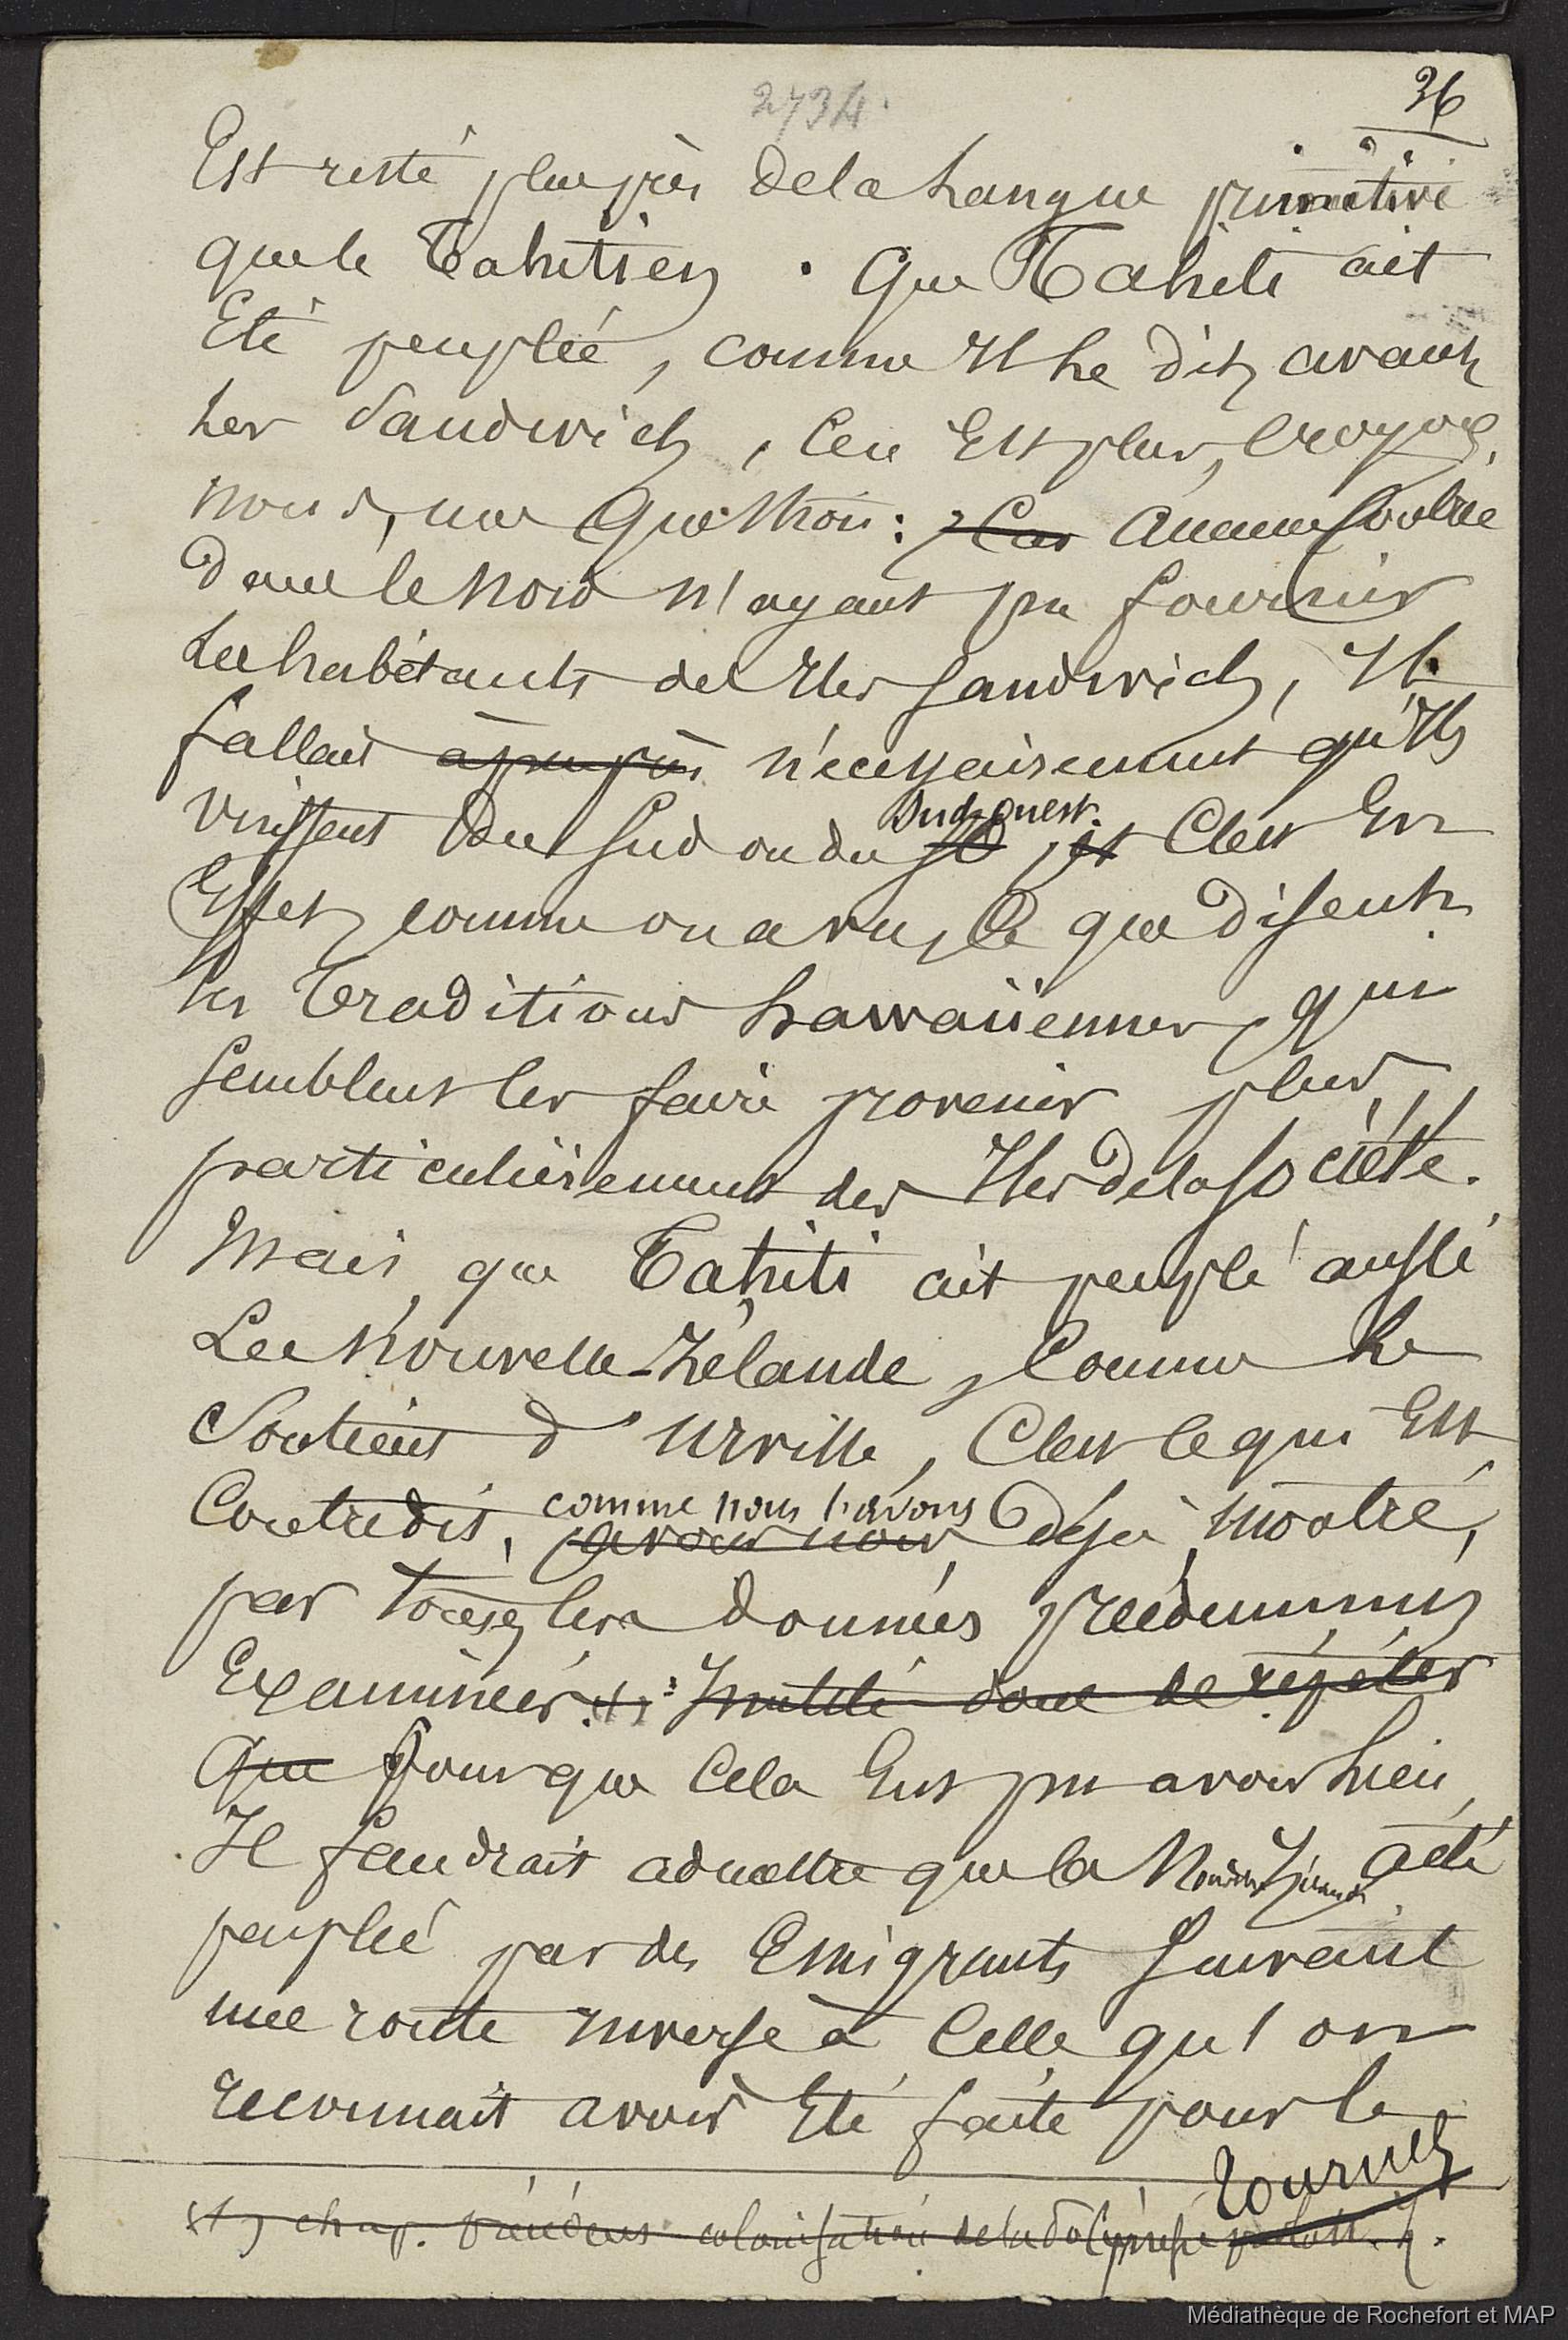 2734.
36
Est resté plus près de la Langue primitive
que le Tahitien. Que Tahiti ait
Eté peuplée, comme Il le dit, avant
les Sandwich, C'en Est plus, croyons
nous, une Question : , Car Aucune Contrée
dans le Nord n'ayant pu fournir
Les habitants des Iles Sandwich, Il
fallait à peu près nécessairement qu'Ils
vinssent du Sud ou du SO Sud-Ouest. , et C'est En
Effet, comme on a vu, Ce que disent
les Traditions hawaiiennes, qui
semblent les faire provenir plus
particulièrement des Iles de la Société.
Mais que Tahiti ait peuplé aussi
La Nouvelle-Zélande, Comme Le
Soutient d'Urville, C'est ce qui Est
Contredit, comme nous l'avons
avons nous Déjà montré,
par toutes les données précédemment
Examinées. Inutile donc de répéter
Que Pour que Cela Eut pu avoir Lieu,
Il faudrait admettre que la Nouvelle Zélande a été
peuplée par des Emigrants Suivant
une route inverse à Celle qu'on
reconnait avoir Eté faite pour le
tournez
chap. précédent colonisation de la Polynésie
Médiathèque de Rochefort et MAP